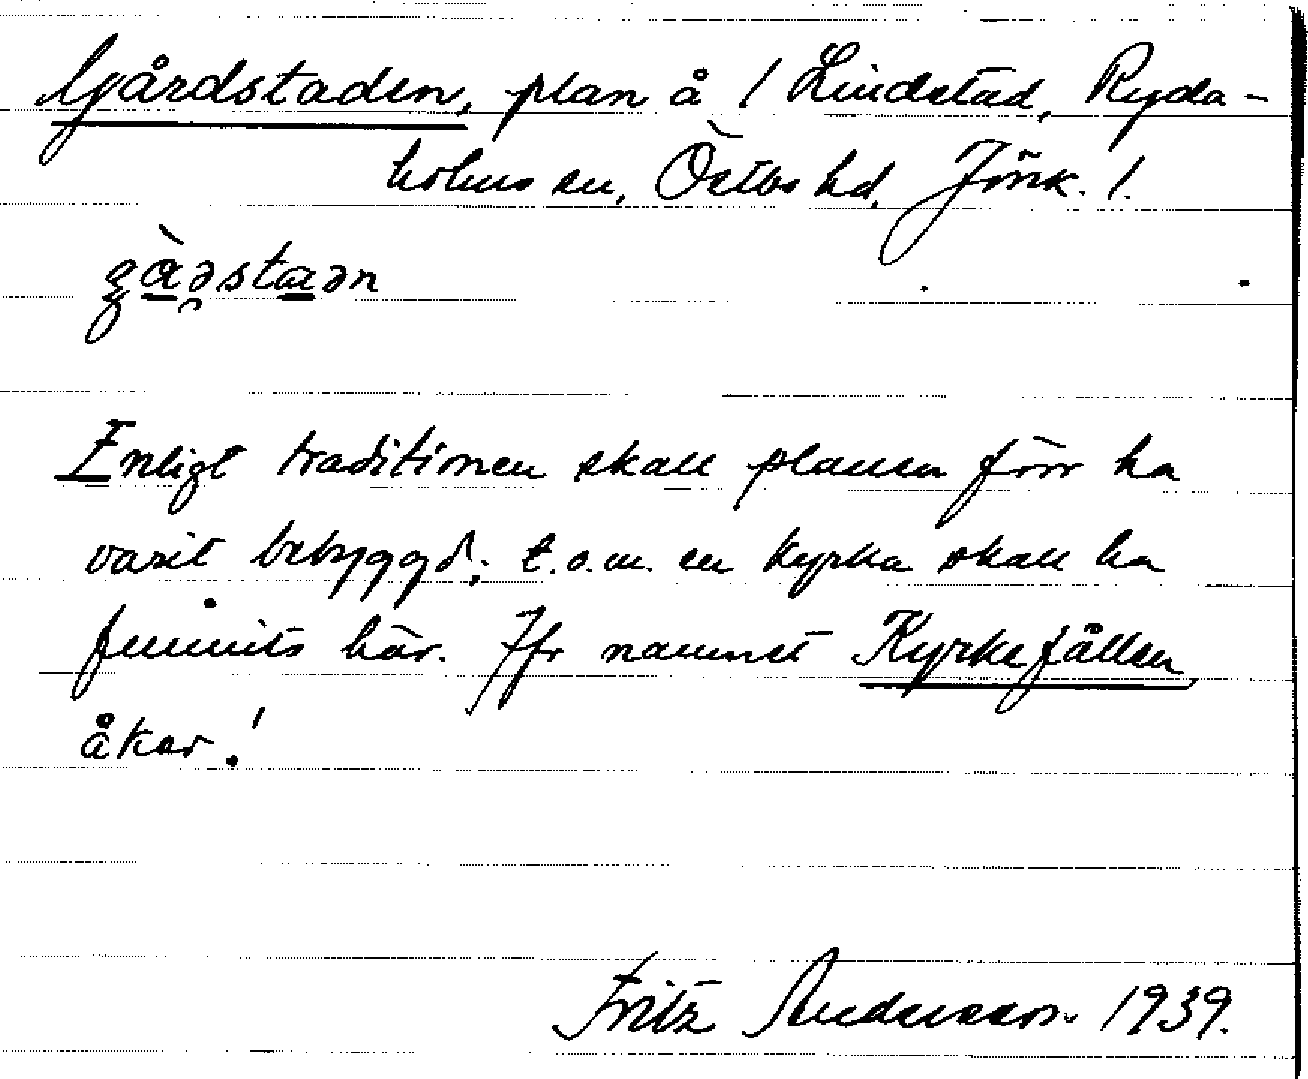 Gårdstaden, plan å 1 Lindstad, Ryda-
holms sn, Östbo hd, Jönk. l.
gàəstaən
Enligt traditionen skall planen förr ha
varit bebyggd; t.o.m. en kyrka skall ha
funnits här. Jfr namnet Kyrkefållen
åker!
Fritz Andersson 1939.